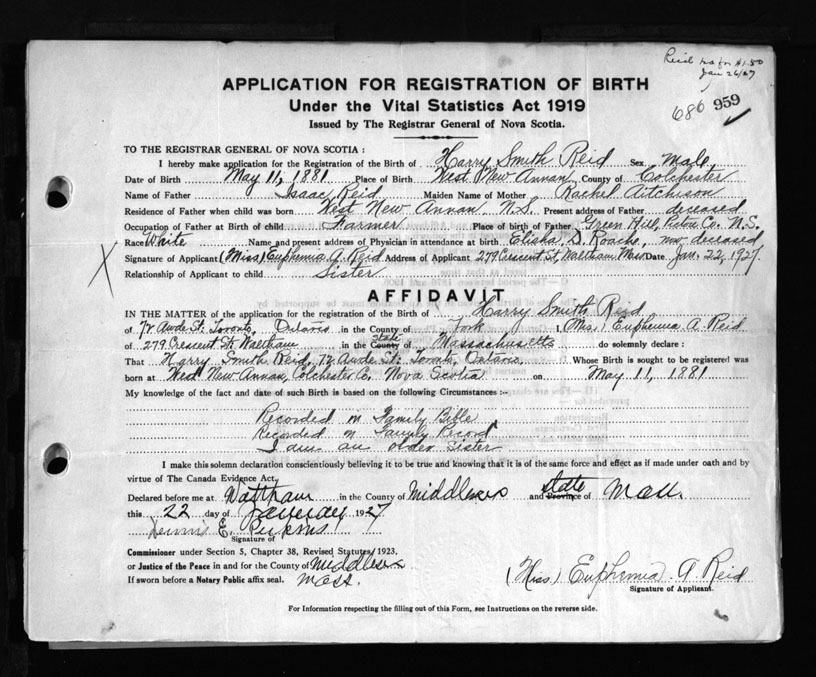 Reid
Jan 26/27
686 959
APPLICATION FOR REGISTRATION OF BIRTH
Under the Vital Statistics Act 1919
Issued by The Registrar General of Nova Scotia.
TO THE REGISTRAR GENERAL OF NOVA SCOTIA :
I hereby make application for the Registration of the Birth of Harry Smith Reid Sex Male
Date of Birth May 11, 1881 Place of Birth West New Annan County of Colchester
Name of Father Isaac Reid Maiden Name of Mother Rachel Aitchison
Residence of Father when child was born West New Annan, N.S. Present address of Father deceased
Occupation of Father at Birth of child Farmer Place of birth of Father Green Hill, Pictou Co. N.S.
Race White Name and present address of Physician in attendance at birth Elisha D. Roache, now deceased
Signature of Applicant (Miss) Euphemia A. Reid Address of Applicant 279 Crescent St, Waltham Mass Date Jan. 22, 1927
Relationship of Applicant to child Sister
AFFIDAVIT
IN THE MATTER of the application for the registration of the Birth of Harry Smith Reid
of 72 Awde St. Toronto, Ontario in the County of York I, (Miss) Euphemia A. Reid
of 279 Crescent St. Waltham in the County State of Massachusetts do solemnly declare :
That Harry Smith Reid, 72 Awde St. Toronto, Ontario, Whose Birth is sought to be registered was
born at West New Annan, Colchester Co. Nova Scotia on May 11, 1881
My knowledge of the fact and date of such Birth is based on the following Circumstances :-
Recorded in Family Bible
Recorded in Family Record
I am an older sister
I make this solemn declaration conscientiously believing it to be true and knowing that it is of the same force and effect as if made under oath and by
virtue of The Canada Evidence Act.
Declared before me at Waltham in the County of Middlesex and Province state of Mass.
this 22 day of January 1927
E. Perkins
Signature of
Commissioner under Section 5, Chapter 38, Revised Statutes 1923.
or Justice of the Peace in and for the County of Middlesex
If sworn before a Notary Public affix seal. Mass.
(Miss) Euphemia A. Reid
Signature of Applicant.
For Information respecting the filling out of this Form, see Instructions on the reverse side.